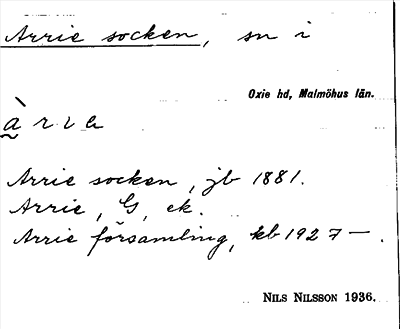 Arrie socken, sn i
Oxie hd, Malmöhus län.
à r ı e
Arrie socken, jb 1881.
Arrie, G, ek.
Arrie församling, kb 1927—.
NILS NILSSON 1936.